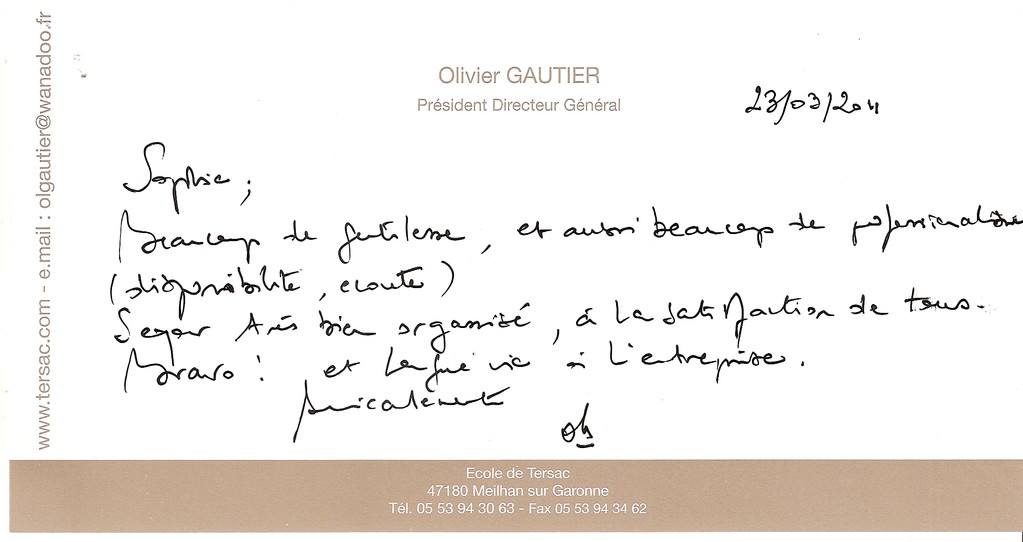 www.tersac.com - e.mail : olgautier@wanadoo.fr
Olivier GAUTIER
Président Directeur Général
23/03/2011
Sophie ;
Beaucoup de gentilesse, et aussi beaucoup de professionalisme
(disponibilité, ecoute)
Sejour très bien organisé, à la satisfaction de tous.
Bravo ! et longue vie à l'entreprise.
Amicalement
Ecole de Tersac
47180 Meilhan sur Garonne
Tél. 05 53 94 30 63 - Fax 05 53 94 34 62